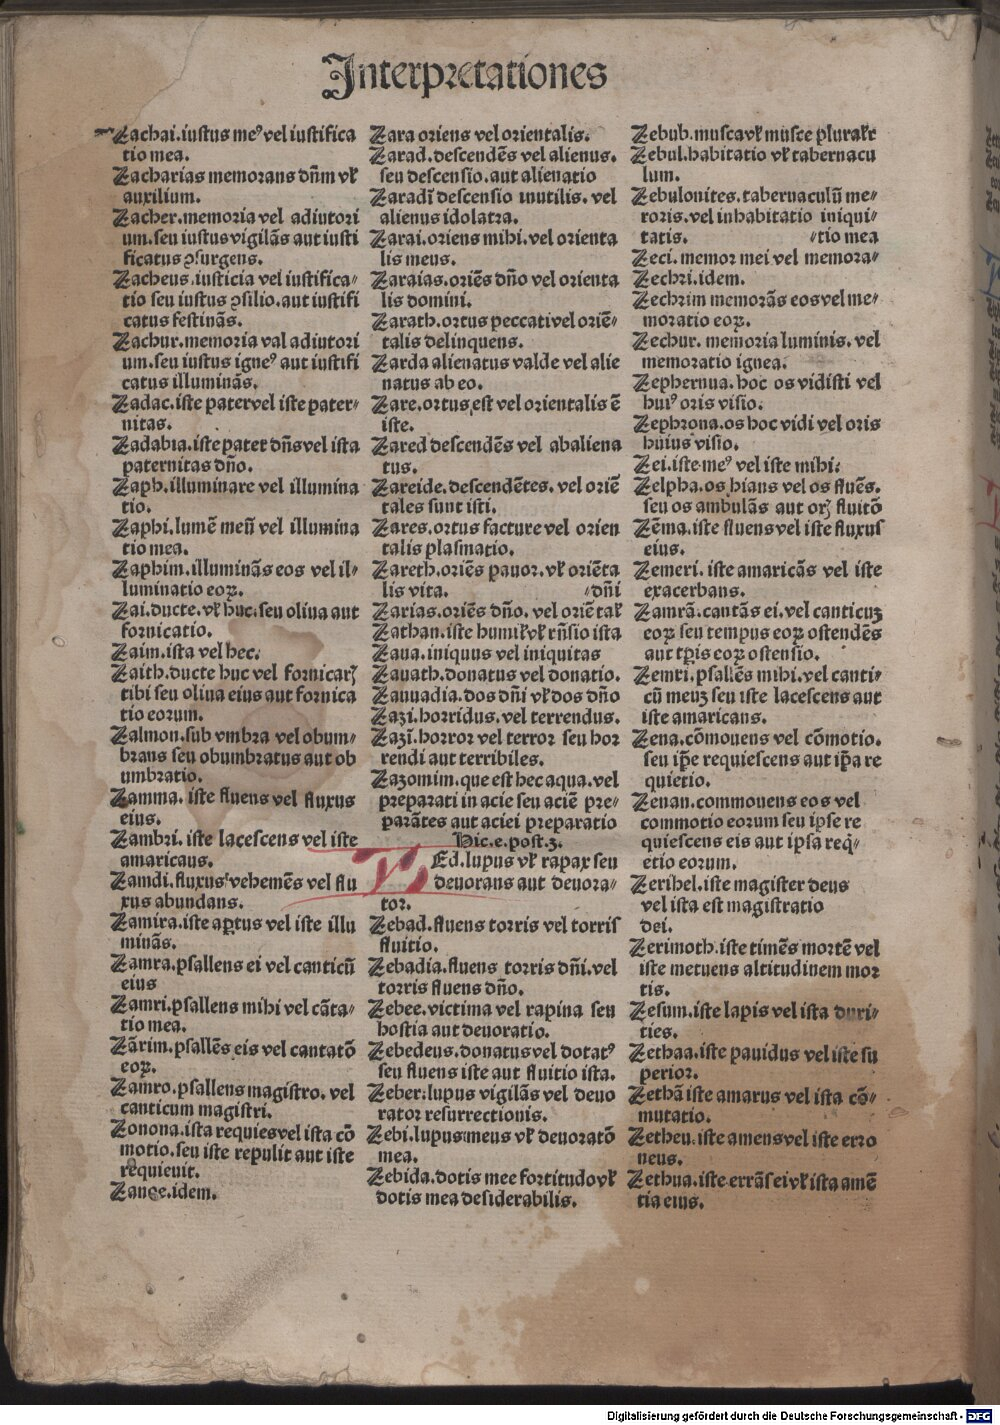 Interpretationes
Zachai.iustus meꝰ vel iustifica
tio mea.
Zacharias memorans dñm vł
auxilium.
Zacher.memoria vel adiutori
um.seu iustus vigilãs aut iusti
ficatus ꝯsurgens.
Zacheus.iusticia vel iustifica-
tio seu iustus ꝯsilio.aut iustifi
catus festinãs.
Zachur.memoria val adiutori
um.seu iustus igneꝰ aut iustifi
catus illuminãs.
Zadac.iste pater vel iste pater-
nitas.
Zadabia.iste pater dñs vel ista
paternitas dño.
Zaph.illuminare vel illumina
tio.
Zaphi.lumẽ meũ vel illumina
tio mea.
Zaphim.illuminãs eos vel il-
luminatio eoꝝ.
Zai.ducte.vł huc.seu oliua aut
fornicatio.
Zaim.ista vel hec.
Zaith.ducte huc vel fornicarꝭ
tibi seu oliua eius aut fornica
tio eorum.
Zalmon.sub vmbra vel obum-
brans seu obumbratus aut ob
umbratio.
Zamma. iste fluens vel fluxus
eius.
Zambri. iste lacescens vel iste
amaricans.
Zamdi.fluxus vehemẽs vel flu
xus abundans.
Zamira.iste aꝑtus vel iste illu
minãs.
Zamra.psallens ei vel canticũ
eius
Zamri.psallens mihi vel cãta-
tio mea.
Zãrim.psallẽs eis vel cantatõ
eoꝝ.
Zamro.psallens magistro. vel
canticum magistri.
Zonona.ista requies vel ista cõ
motio.seu iste repulit aut iste
requieuit.
Zanoe.idem.
Zara oriens vel orientalis.
Zarad.descendẽs vel alienus.
seu descensio.aut alienatio
Zaradĩ descensio inutilis. vel
alienus idolatra.
Zarai.oriens mihi.vel orienta
lis meus.
Zaraias.oriẽs dño vel orienta
lis domini.
Zarath.ortus peccati vel oriẽ-
talis delinquens.
Zarda alienatus valde vel alie
natus ab eo.
Zare.ortus est vel orientalis ẽ
iste.
Zared descendẽs vel abaliena
tus.
Zareide.descendẽtes. vel oriẽ
tales sunt isti.
Zares.ortus facture vel orien
talis plasmatio.
Zareth.oriẽs pauor. vł oriẽta
lis vita. -dñi
Zarias.oriẽs dño. vel oriẽtał
Zathan.iste humił vł rñsio ista
Zaua.iniquus vel iniquitas
Zauath.donatus vel donatio.
Zauuadia.dos dñi vł dos dño
Zazi.horridus.vel terrendus.
Zazĩ.horror vel terror seu hor
rendi aut terribiles.
Zazomim.que est hec aqua.vel
preparati in acie seu aciẽ pre-
parãtes aut aciei preparatio
Hic.e.post.z.
Ed.lupus vł rapax seu
deuorans aut deuora-
tor.
Zebad.fluens torris vel torris
fluitio.
Zebadia.fluens torris dñi.vel
torris fluens dño.
Zebee.victima vel rapina seu
hostia aut deuoratio.
Zebedeus.donatus vel dotatꝰ
seu fluens iste aut fluitio ista.
Zeber.lupus vigilãs vel deuo
rator resurrectionis.
Zebi.lupus meus vł deuoratõ
mea.
Zebida.dotis mee fortitudo vł
dotis mea desiderabilis.
Zebub.musca vł musce pluralr
Zebul.habitatio vł tabernacu
lum.
Zebulonites.tabernaculũ me-
roris.vel inhabitatio iniqui-
tatis. -tio mea
Zeci.memor mei vel memora-
Zechri.idem.
Zechrim memorãs eos vel me-
moratio eoꝝ.
Zechur. memoria luminis. vel
memoratio ignea.
Zephernua.hoc os vidisti vel
huiꝰ oris visio.
Zephrona.os hoc vidi vel oris
huius visio.
Zei.iste meꝰ vel iste mihi.
Zelpha.os hians vel os fluẽs.
seu os ambulãs aut orꝭ fluitõ
Zẽma.iste fluens vel iste fluxus
eius.
Zemeri. iste amaricãs vel iste
exacerbans.
Zamrã.cantãs ei.vel canticuꝫ
eoꝝ seu tempus eoꝝ ostendẽs
aut tp̃is eoꝝ ostensio.
Zemri.psallẽs mihi.vel canti-
cũ meuꝫ seu iste lacescens aut
iste amaricans.
Zena.cõmouens vel cõmotio.
seu ip̃e requiescens aut ip̃a re
quietio.
Zenan.commouens eos vel
commotio eorum seu ipse re
quiescens eis aut ipsa req̃-
etio eorum.
Zerihel.iste magister deus
vel ista est magistratio
dei.
Zerimoth.iste timẽs mortẽ vel
iste metuens altitudinem mor
tis.
Zesum.iste lapis vel ista duri-
ties.
Zethaa.iste pauidus vel iste su
perior.
Zethã iste amarus vel ista cõ-
mutatio.
Zetheu.iste amens vel iste erro
neus.
Zethua.iste errãs ei vł ista amẽ
tia eius.
Digitalisierung gefördert durch die Deutsche Forschungsgemeinschaft - DFG